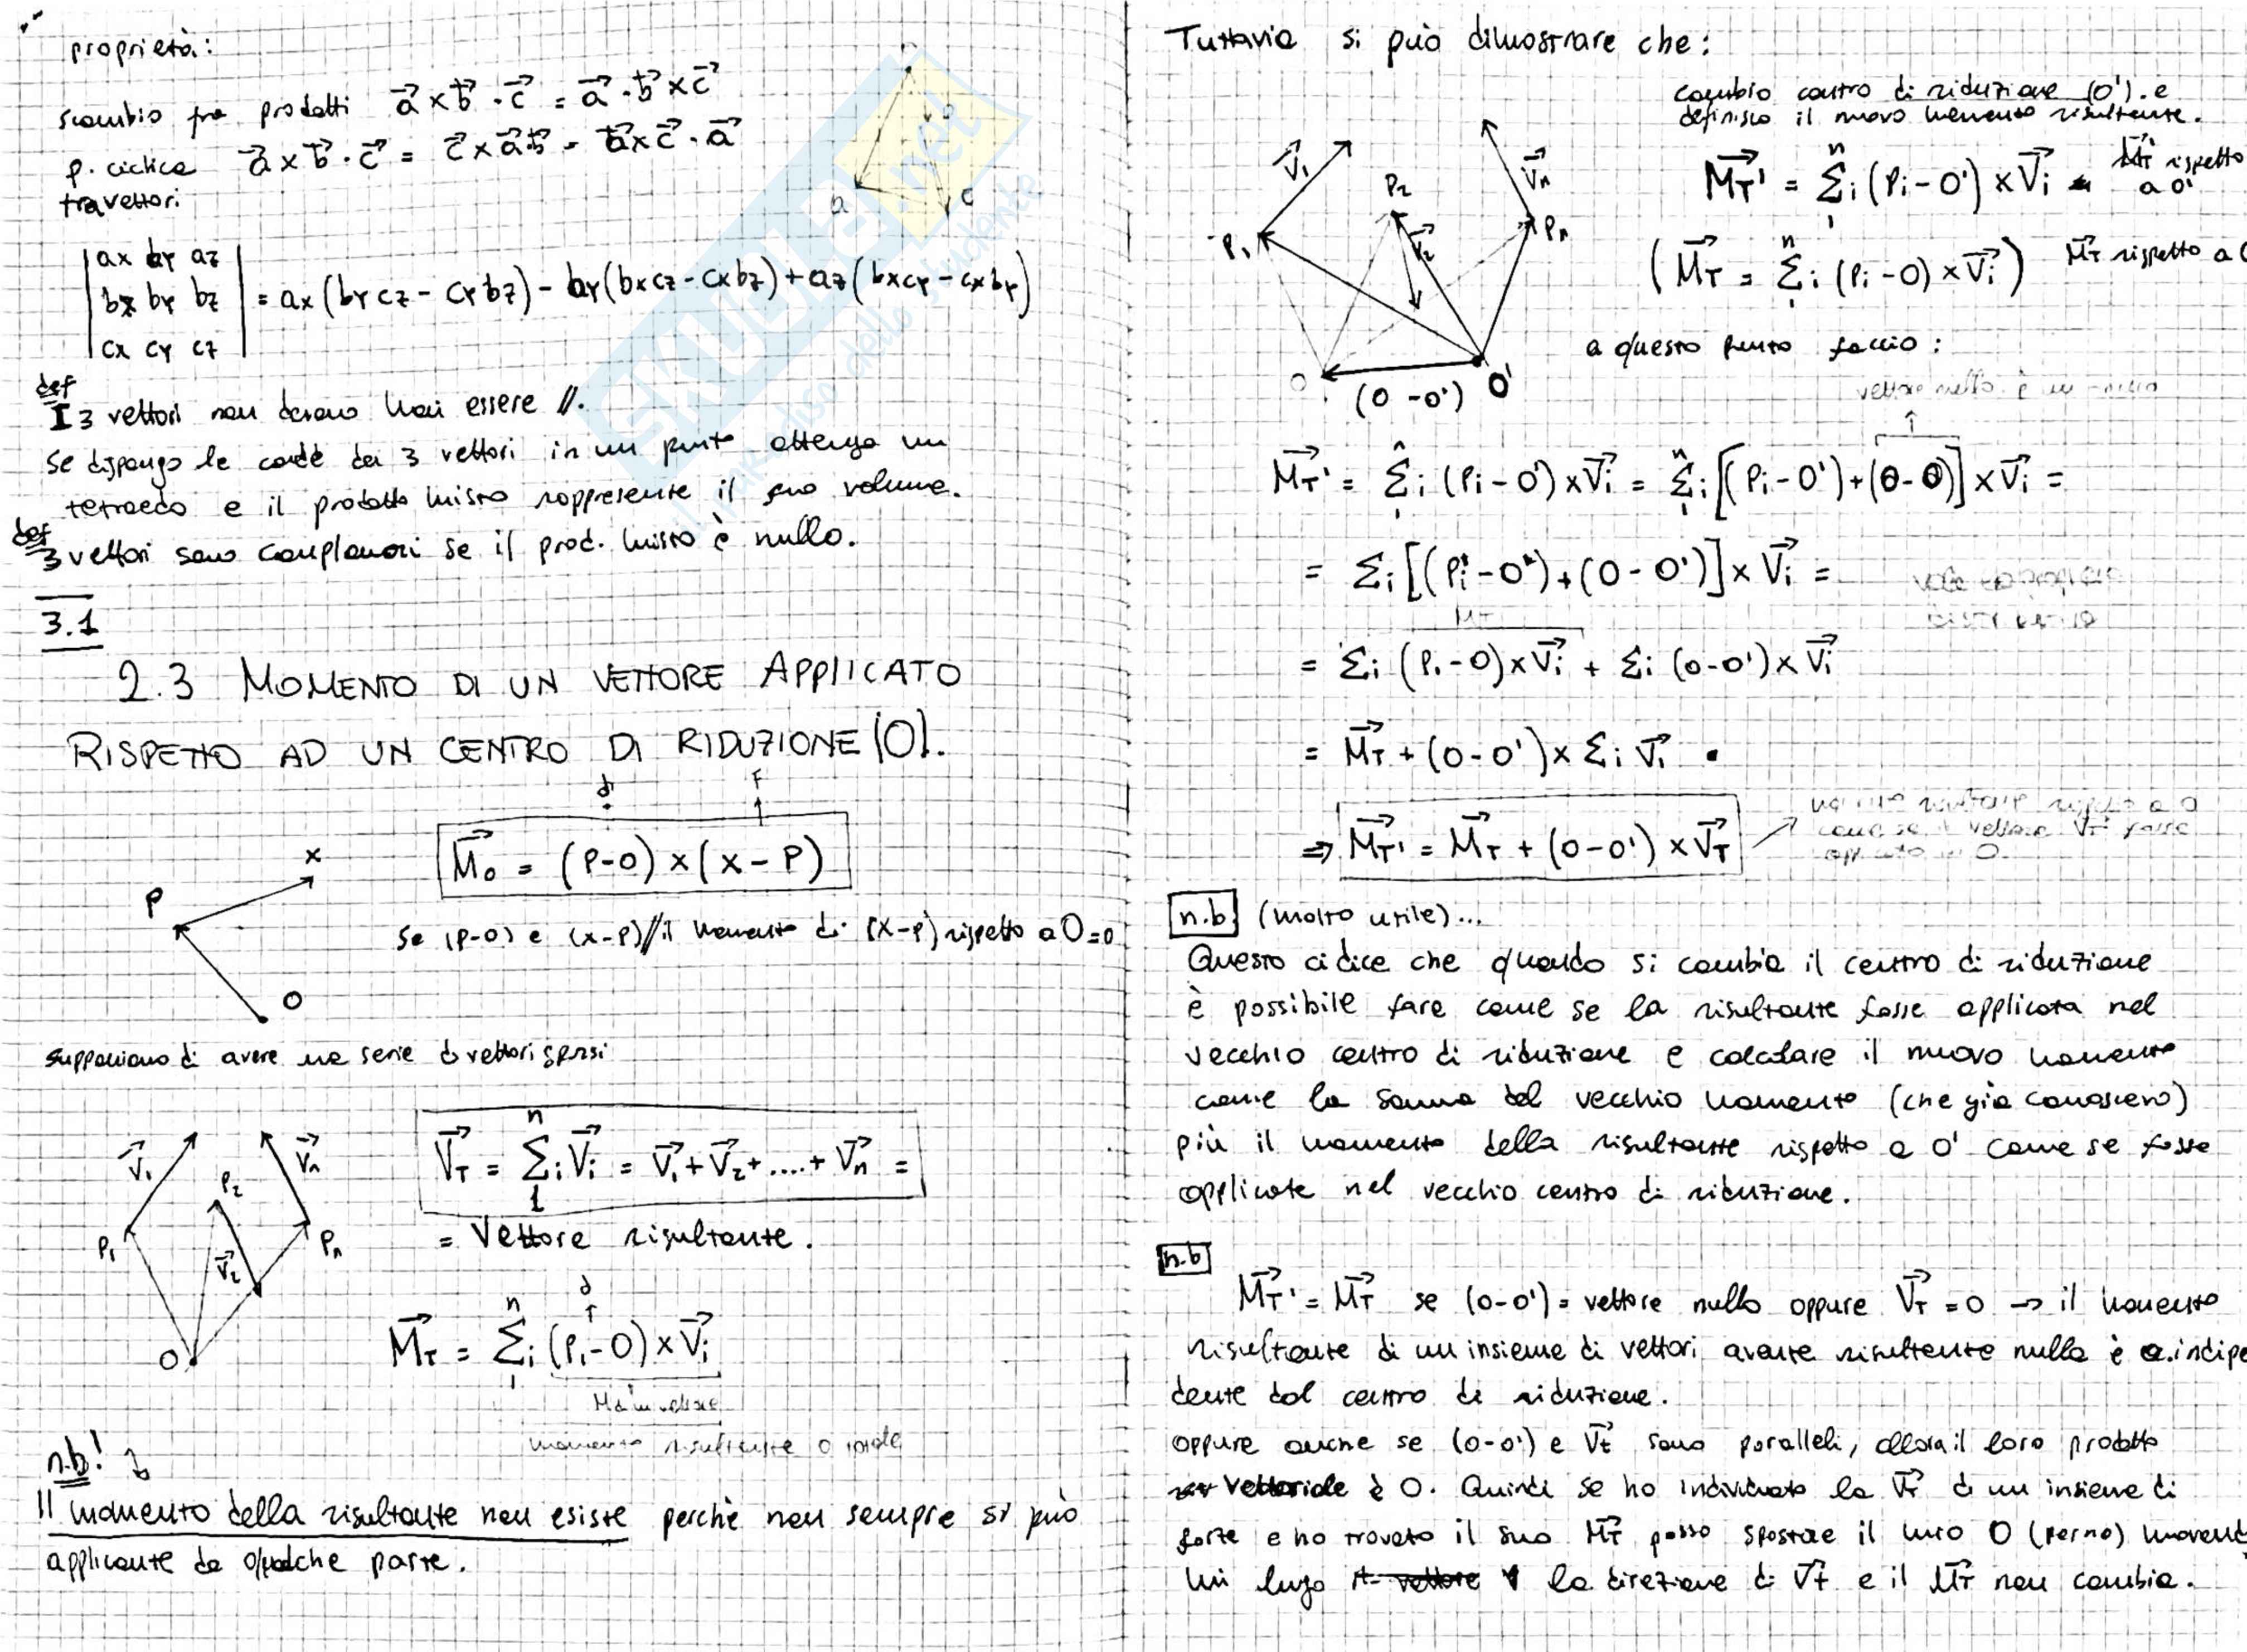 proprietà:
scambio fra prodotti a⃗ × b⃗ · c⃗ = a⃗ · b⃗ × c⃗
p. ciclica a⃗ × b⃗ · c⃗ = c⃗ × a⃗ b⃗ = b⃗ × c⃗ · a⃗
tra vettori
a
c
| ax ay az |
| bx by bz | = ax (by cz - cy bz) - ay (bx cz - cx bz) + az (bx cy - cx by)
| cx cy cz |
def
I 3 vettori non devono mai essere //.
Se dispongo le code dei 3 vettori in un punto ottengo un
tetraedo e il prodotto misto rappresente il suo volume.
def
3 vettori sono complanari se il prod. misto è nullo.
SKUOLA.net
il paradiso dello studente
3.1
2.3 MOMENTO DI UN VETTORE APPLICATO
RISPETTO AD UN CENTRO DI RIDUZIONE (O).
d F
M⃗o = (P-O) × (x-P)
P x O
Se (P-O) e (x-P) // il momento di (x-P) rispetto a O = 0
supponiamo di avere una serie di vettori sparsi
V⃗1 P2 V⃗n
P1 V⃗2 Pn
O
V⃗T = n Σi 1 V⃗i = V⃗1 + V⃗2 + .... + V⃗n =
= Vettore risultante.
d
M⃗T = n Σi 1 (Pi-O) × V⃗i
momento risultante o totale
n.b!
Il momento della risultante non esiste perchè non sempre si può
applicante da qualche parte.
Tuttavia si può dimostrare che:
cambio centro di riduzione (O'). e
definisco il nuovo momento risultante.
V⃗1 P2 V⃗n
P1 V⃗2 Pn
O (O-O') O'
M⃗T' = n Σi 1 (Pi-O') × V⃗i M⃗T rispetto a O'
(M⃗T = n Σi 1 (Pi-O) × V⃗i) M⃗T rispetto a O
a questo punto faccio:
vettore nullo è un
M⃗T' = n Σi 1 (Pi-O') × V⃗i = n Σi 1 [(Pi-O') + (O-O)] × V⃗i =
= Σi [(Pi-O) + (O-O')] × V⃗i =
MT
= Σi (Pi-O) × V⃗i + Σi (O-O') × V⃗i
= M⃗T + (O-O') × Σi V⃗i .
⇒ M⃗T' = M⃗T + (O-O') × V⃗T
n.b. (molto utile)...
Questo ci dice che quando si cambia il centro di riduzione
è possibile fare come se la risultante fosse applicata nel
vecchio centro di riduzione e calcolare il nuovo momento
come la somma del vecchio momento (che già conoscevo)
più il momento della risultante rispetto a O' come se fosse
applicate nel vecchio centro di riduzione.
n.b
M⃗T' = M⃗T se (O-O') = vettore nullo oppure V⃗T = 0 → il momento
risultante di un insieme di vettori avente risultente nulla è indipe
dente dal centro di riduzione.
oppure anche se (O-O') e V⃗t sono paralleli, allora il loro prodotto
vettoriale è 0. Quindi se ho individuato la V⃗T di un insieme di
forze e ho trovato il suo M⃗T posso spostare il mio O (perno) movend
mi lugo la direzione di V⃗t e il M⃗T non cambia.